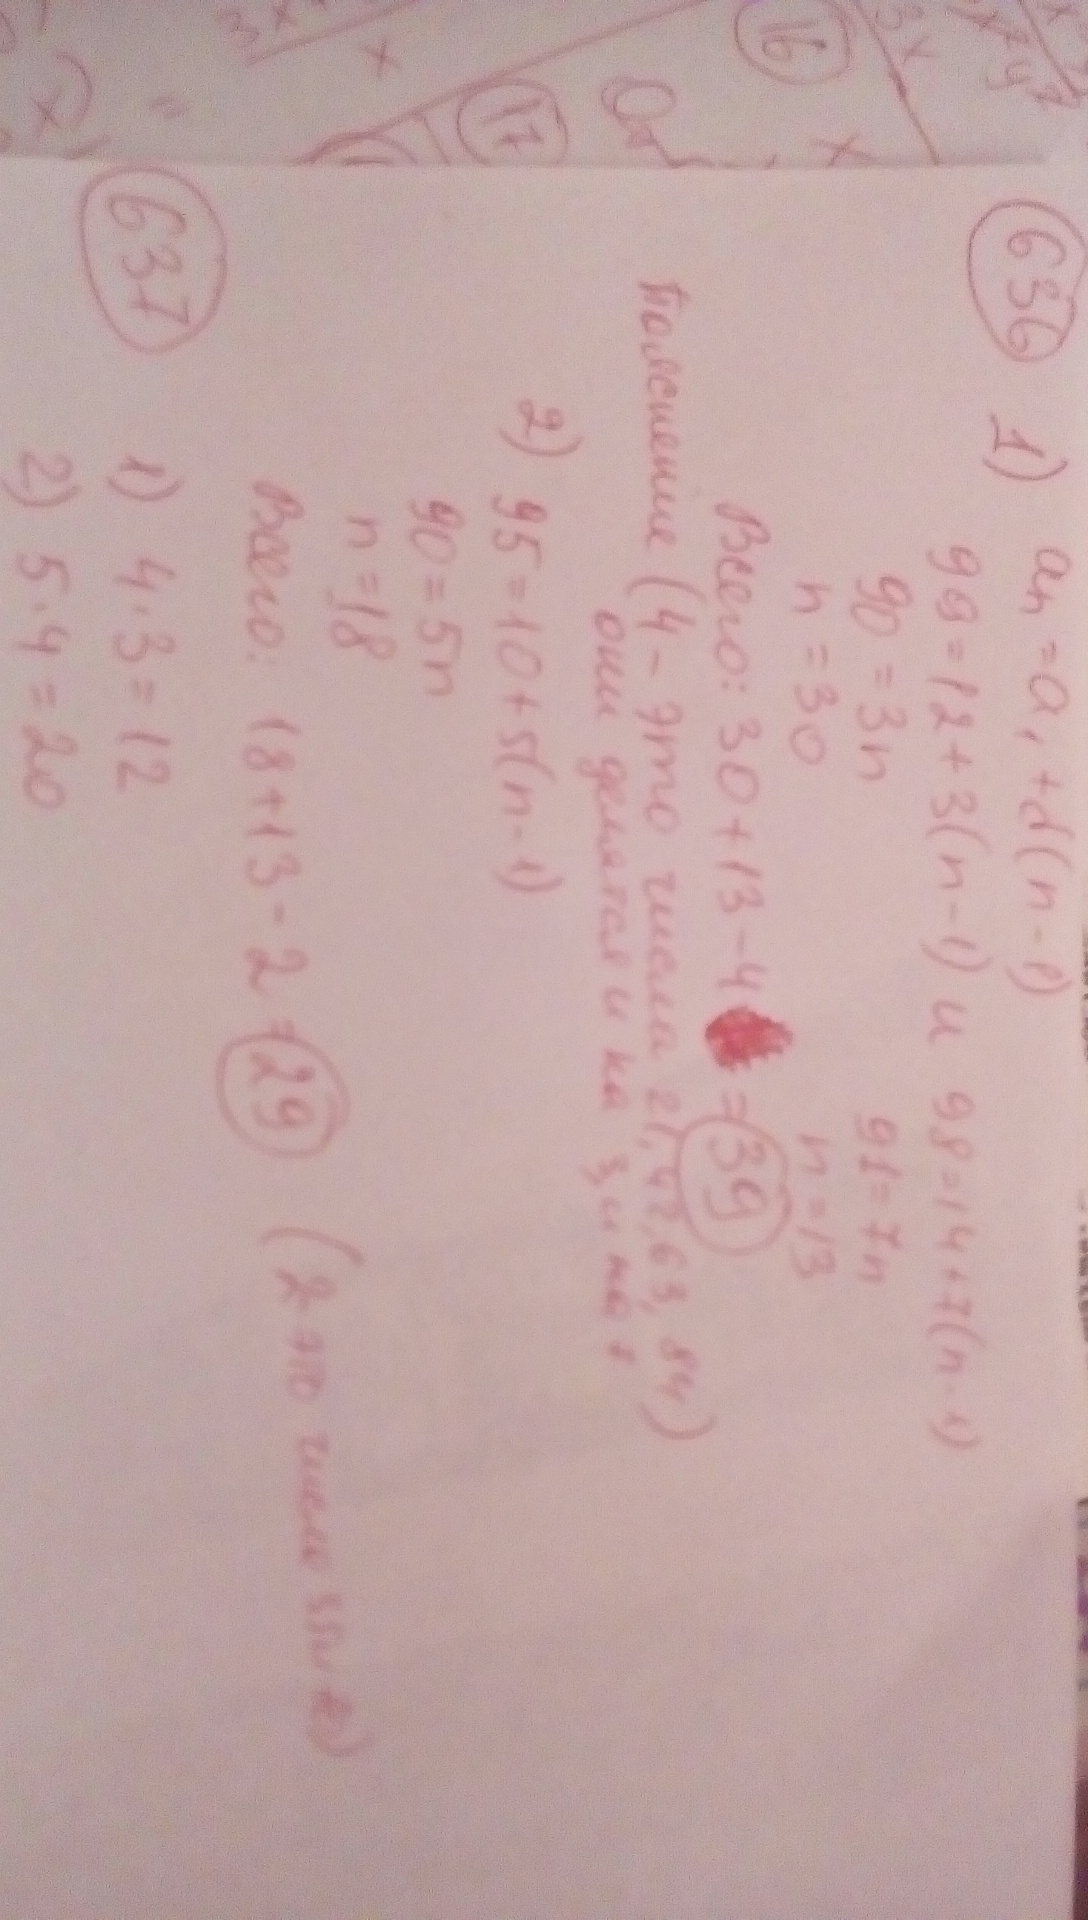 16
17
636
1) an = a1 + d(n-1)
99 = 12 + 3(n-1) и 98 = 14 + 7(n-1)
90 = 3n 91 = 7n
n = 30 n = 13
Всего: 30 + 13 - 4 = 39
Пояснение (4 - это числа 21, 42, 63, 84)
они делятся и на 3, и на 7
2) 95 = 10 + 5(n-1)
90 = 5n
n = 18
Всего: 18 + 13 - 2 = 29 (2 это числа
637
1) 4 · 3 = 12
2) 5 · 4 = 20